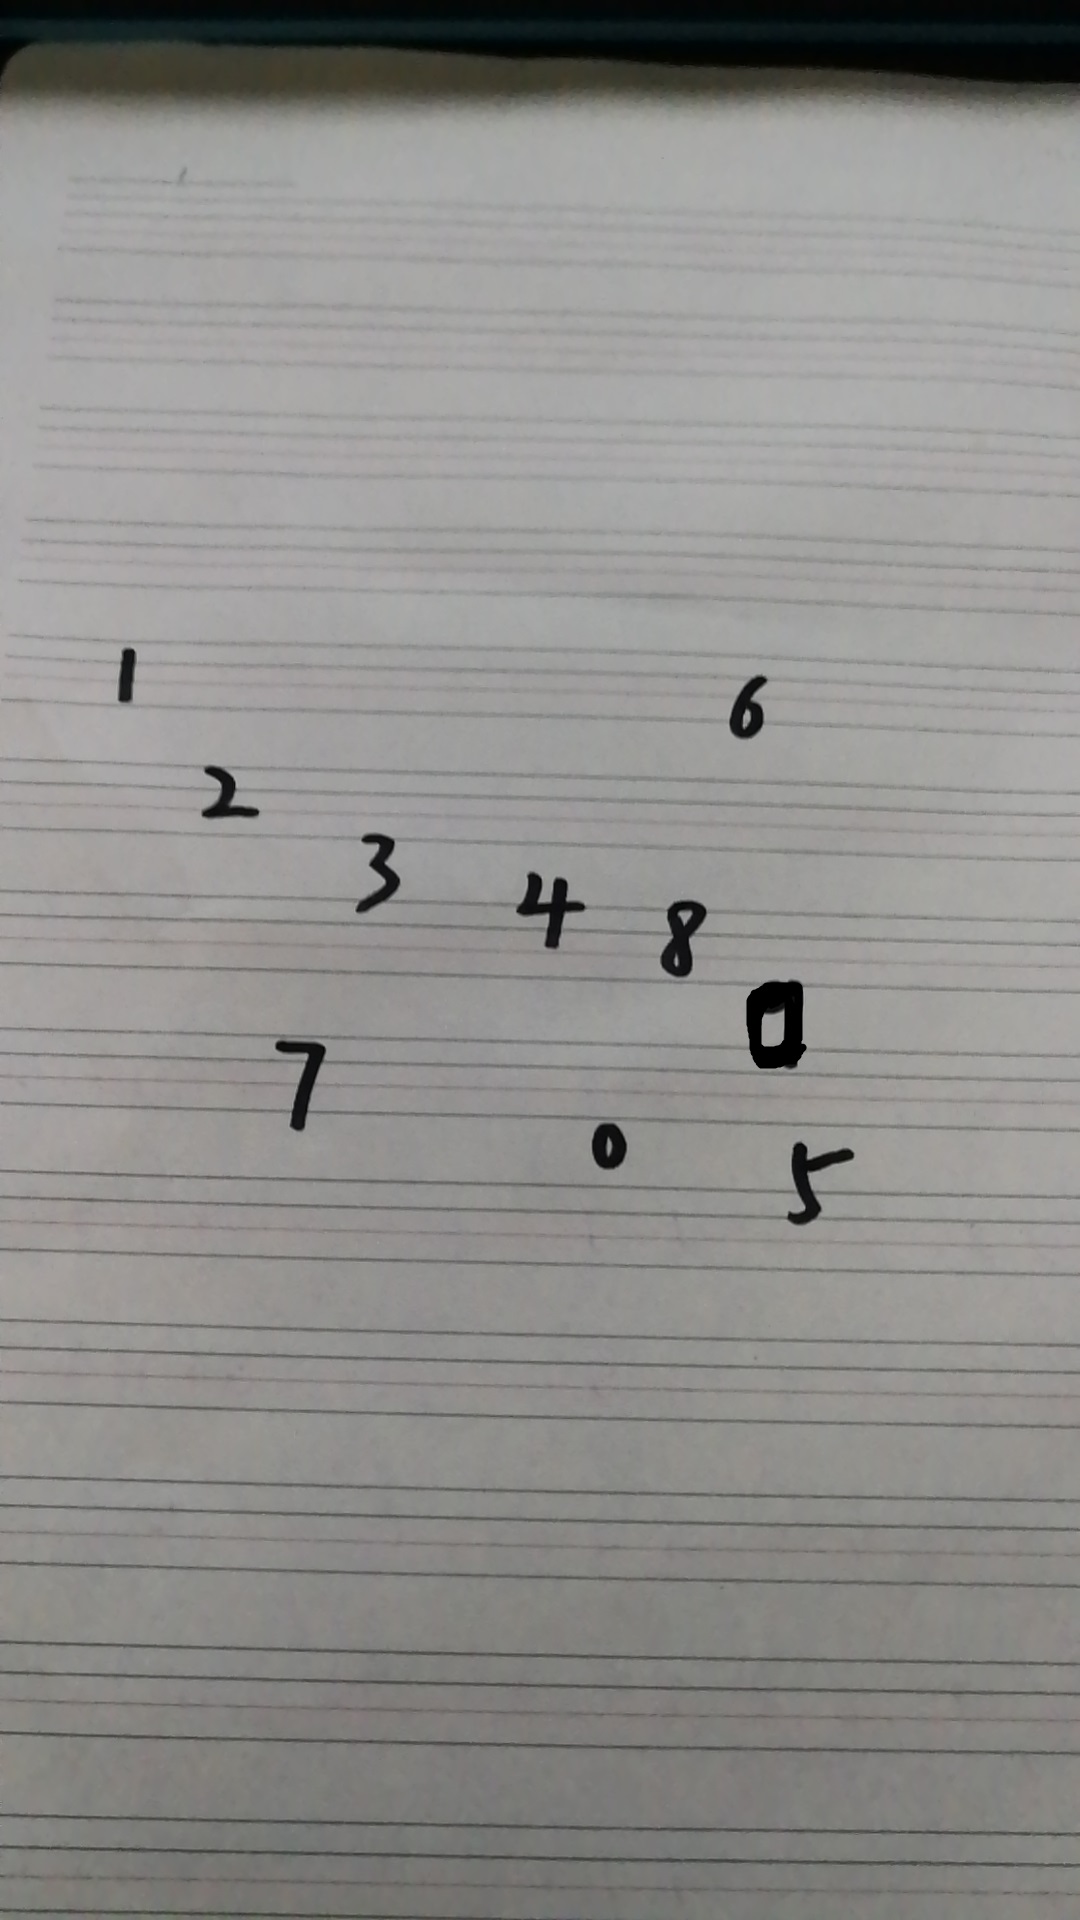 1
6
2
3
4
8
0
7
0
5